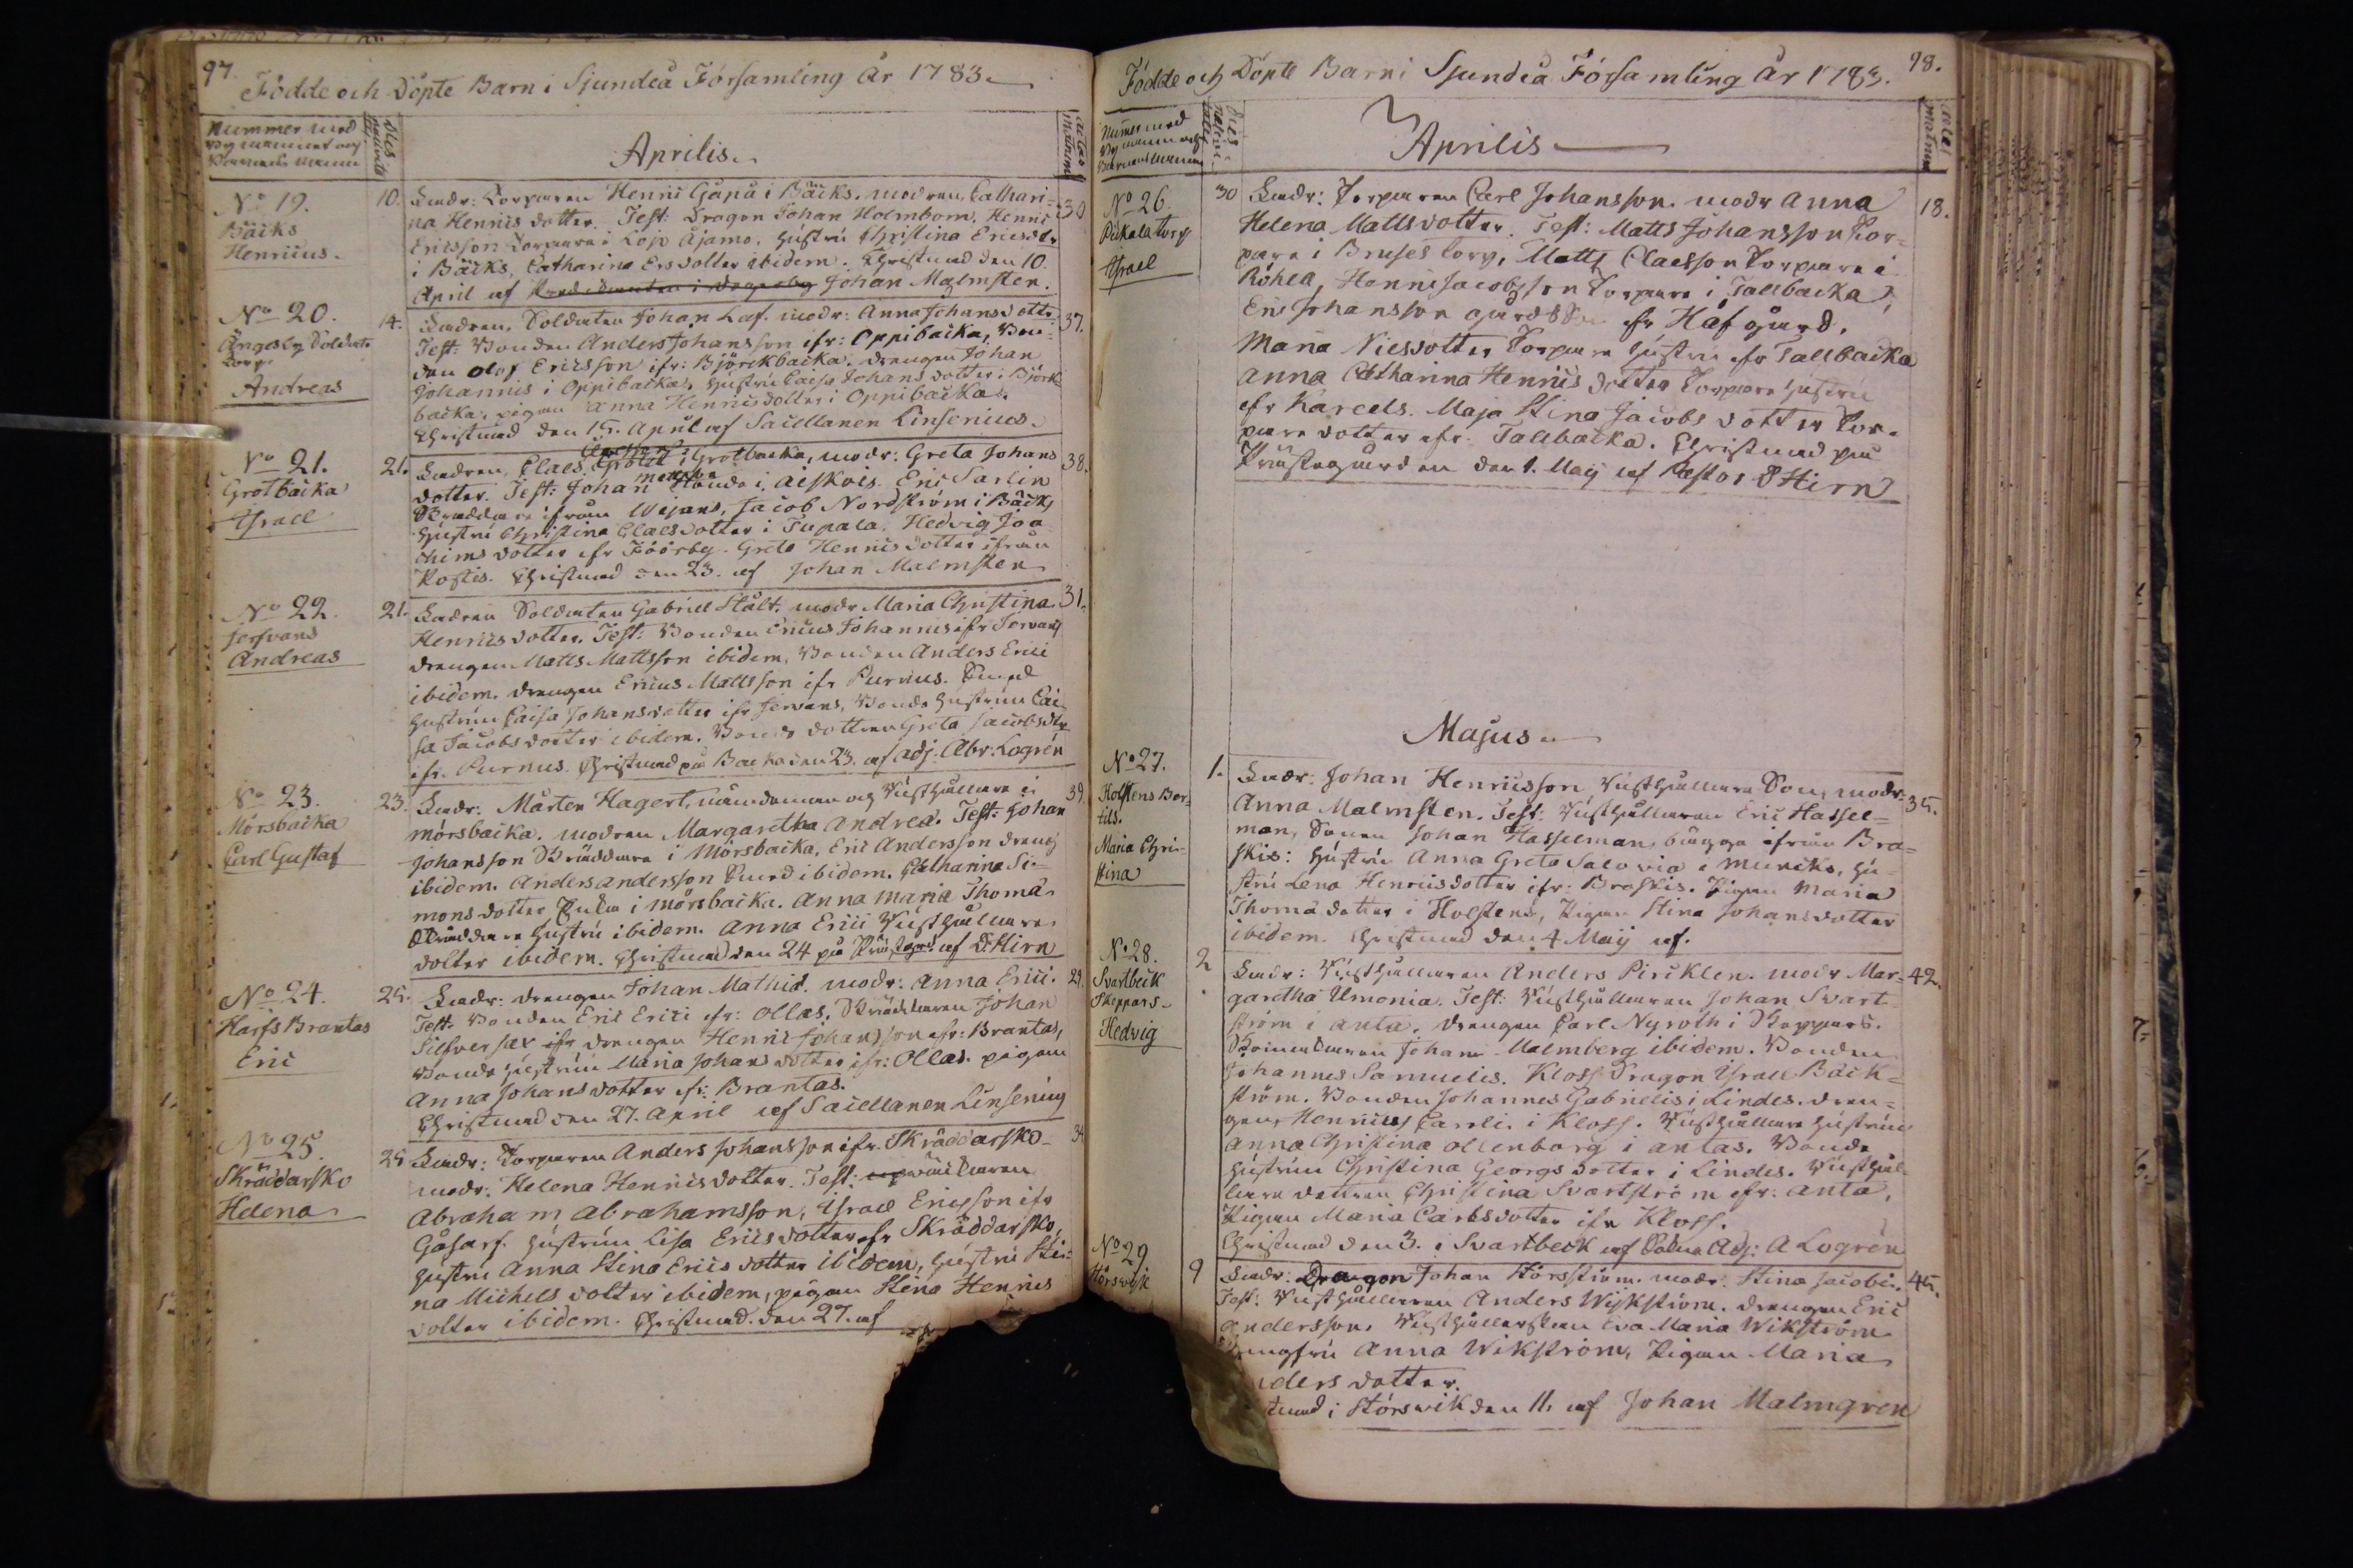 97.
Födde och Döpte Barn i Sjundeå Församling År 1783.
Nummer med
By namnet och
Barnens namn
Dies
nativita
tis
Aprilis.
aetas
matrum
No 19.
Bäcks
Henricus.
10.
30
Fadr: Torparen Henric Gåpå i Bäcks. modren Cathari-
na Henrics dotter. Test: Dragon Johan Holmbom. Henric
Ericsson Torpare i Lojo Ajamo. hustru Christina Ericsdtr
i Bäcks, Catharina Ersdotter ibidem. Christnad den 10.
April af Johan Malmsten.
No 20.
Ängesby Soldate
Torp.
Andreas
14.
37.
Fadren. Soldaten Johan Laf. modr: Anna Johansdotter
Test: Bonden Anders Johansson ifr: Oppibacka, Bon-
den Olof Ericsson ifr: Björckbacka. drengen Johan
Johannis i Oppibacka, hustru Caisa Johans dotter i Björk
backa, pigan Anna Henricsdotter i Oppibacka.
Christnad den 15. April af Sacellanen Linsenius.
No 21.
Grotbäcka
Israel
21.
38.
Fadren, Claes Grotbacka, modr: Greta Johans
dotter. Test: Johan Bonde i Aiskois. Eric Sarlin
Skräddare ifrån Wejans, Jacob Nordström i Bäcks
hustru Christina Claesdotter i Tupala. Hedvig Joa
chims dotter ifr Föörby. Greta Henrics dotter ifrån
Kostis. Christnad den 23. af Johan Malmsten
No 22.
Jersvans
Andreas
21.
31.
Fadren Soldaten Gabriel Stålt. modr Maria Christina
Henrics dotter. Test: Bonden Ericus Johannis ifr Jervans
drengen Matts Mattsson ibidem, Bonden Anders Erici
ibidem. drengen Ericus Mattsson ifr Purnus.
hustrun Caisa Johansdotter ifr Jervans, Bonde hustrun Cai
sa Jacobs dotter ibidem. Bonde dottren Greta Jacobsdtr
ifr. Purnus. Christnad på Backa den 23. af adj. Abr. Logrén
No 23.
Mörsbacka
Carl Gustaf
23.
39.
Fadr: Mårten Hagert, nämdeman og Rusthållare i
Mörsbacka. modren Margaretha Andreæ. Test: Johan
Johansson Skräddare i Mörsbacka, Eric Andersson dreng
ibidem. Anders Andersson ibidem. Catharina Si-
mons dotter, Enka i Mörsbacka. Anna Maria Thomæ
Skräddare hustru ibidem. Anna Erici Rusthållare
dotter ibidem. Christnad den 24 på Prästgrd af D: Hirn
No 24.
Harfs Brantas
Eric
25.
29.
Fadr: drengen Johan Mathiæ. modr: Anna Erici.
Test. Bonden Eric Erici ifr: Ollas. Skräddaren Johan
Silfversax ifr drengen Henric Johansson ifr: Brantas,
Bonde hustrun Maria Johans dotter ifr: Ollas. pigan
Anna Johansdotter ifr: Brantas.
Christnad den 27. April af Sacellanen Linsenius
No 25.
Skräddarsko
Helena
25
34
Fadr: Torparen Anders Johansson ifr. Skräddarsko
modr: Helena Henricsdotter. Test:
Abraham Abrahamsson, Israel Ericsson ifr
Gåsarf. hustrun Lisa Ericsdotter ifr Skräddarsko,
hustru Anna Stina Erics dotter ibidem, hustru Sti-
na Michels dotter ibidem, pigan Stina Henrics
dotter ibidem. Christnad den 27. af
98.
Födde och Döpte Barn i Sjundeå Församling År 1783.
Numer med
By namn och
Barnens namn
Dies
nativi-
tatis
Aprilis
aetas
matrum
No 26.
Pickala torp
Israel
30
18.
Fadr: Torparen Carl Johansson. modr Anna
Helena Mattsdotter. Test: Matts Johansson Tor-
pare i Bruses torp, Matts Claesson Torpare i
Röhla, Henric Jacobsson Torpare i Tallbacka,
Eric Johansson gårds ifr Hafgård,
Maria Nilsdotter Torpare hustru ifr Tallbacka
Anna Catharina Henrics dotter Torpare hustru
ifr Karcels. Maja Stina Jacobs dotter Tor-
pare dotter ifr. Tallbacka. Christnad på
Prästegården den 1. Maij af Pastor D Hirn
Majus
No 27.
Holstens Ber-
tils.
Maria Chri-
stina
1.
35.
Fadr: Johan Henricsson Rusthållare Son, modr:
Anna Malmsten. Test: Rusthållaren Eric Hassel-
man, Sonen Johan Hasselman, bägge ifrån Bra-
skis: hustru Anna Greta Salovia i Muncks, hu-
stru Lena Henricsdotter ifr: Braskis. Pigan Maria
Thomædotter i Holstens, Pigan Stina Johansdotter
ibidem. Christnad den 4 Maij af.
No 28.
Svartbeck
Skeppars
Hedvig
2
42.
Fadr: Rusthållaren Anders Pircklen. modr Mar-
garetha Umonia. Test: Rusthållaren Johan Svart-
ström i Anta, drengen Carl Nyroth i Skeppars.
Johan Malmberg ibidem. Bonden
Johannes Samuelis. Kloss Dragon Israel Bäck-
ström. Bonden Johannes Gabrielis i Lindes. dren-
gen, Henricus Caroli i Kloss. Rusthållare hustrun
Anna Christina Ollenborg i Antas. Bonde
hustrun Christina Georgs dotter i Lindes. Rusthål-
lare dottren Christina Svartström ifr: Anta,
Pigan Maria Carlsdotter ifr Kloss.
Christnad den 3. i Svartbeck af Adj: A Logrén
No 29
Störswik
9
45.
Fadr: Dragon Johan Störsström. modr. Stina Jacobi.
Test: Rusthållaren Anders Wijkström. drengen Eric
Andersson. Rusthållerskan Eva Maria Wikström
Jungfru Anna Wikström, Pigan Maria
ders dotter.
tnad i Störswik den 11. af Johan Malmgren